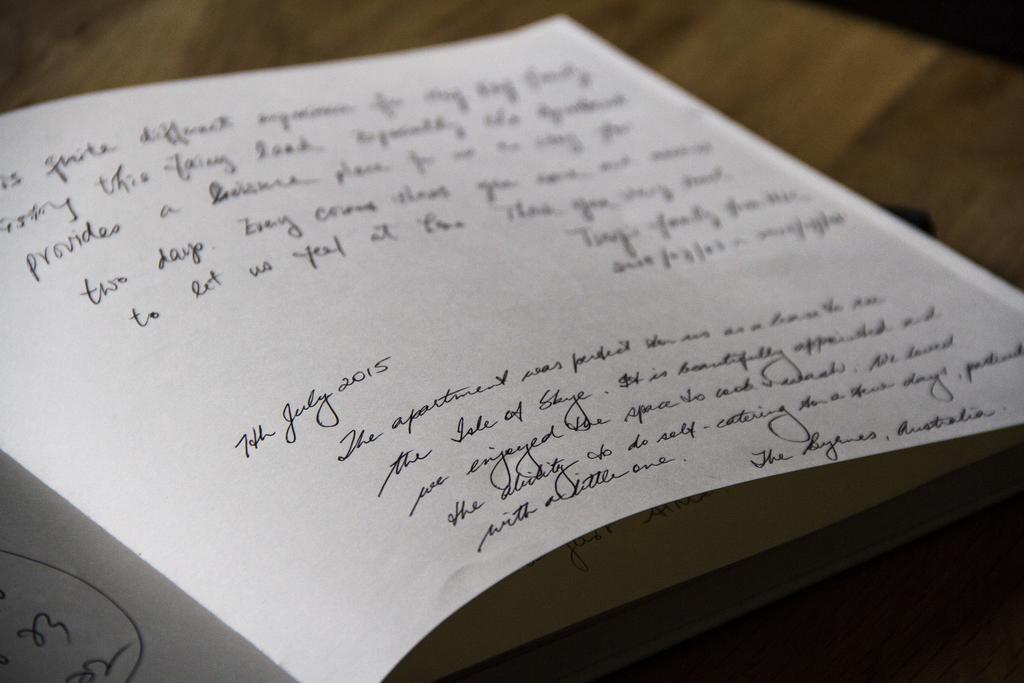 is quite different experience for my family
this fairy land especially the apartment
provides a leisure place for us to stay for
two days. Every corner shows you
to let us feel at home Thank you very much
family from
7th July 2015
The apartment was perfect for us as a base to see
the Isle of Skye. It is beautifully appointed and
we enjoyed the space to cook & wash. We loved
the ability to do self-catering for a few days,
with a little one. The Byrnes, Australia.
just